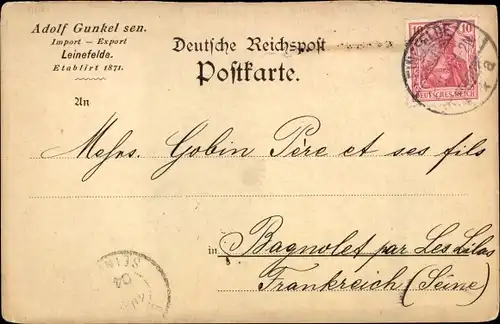 Adolf Gunkel sen.
Import — Export
Leinefelde.
Etablirt 1871.
Deutsche Reichspost
Postkarte.
10
DEUTSCHES REICH
a
An
Messrs. Gobin Père et ses fils
in Bagnolet par Les Lilas
Frankreich (Seine)
04
SEINE